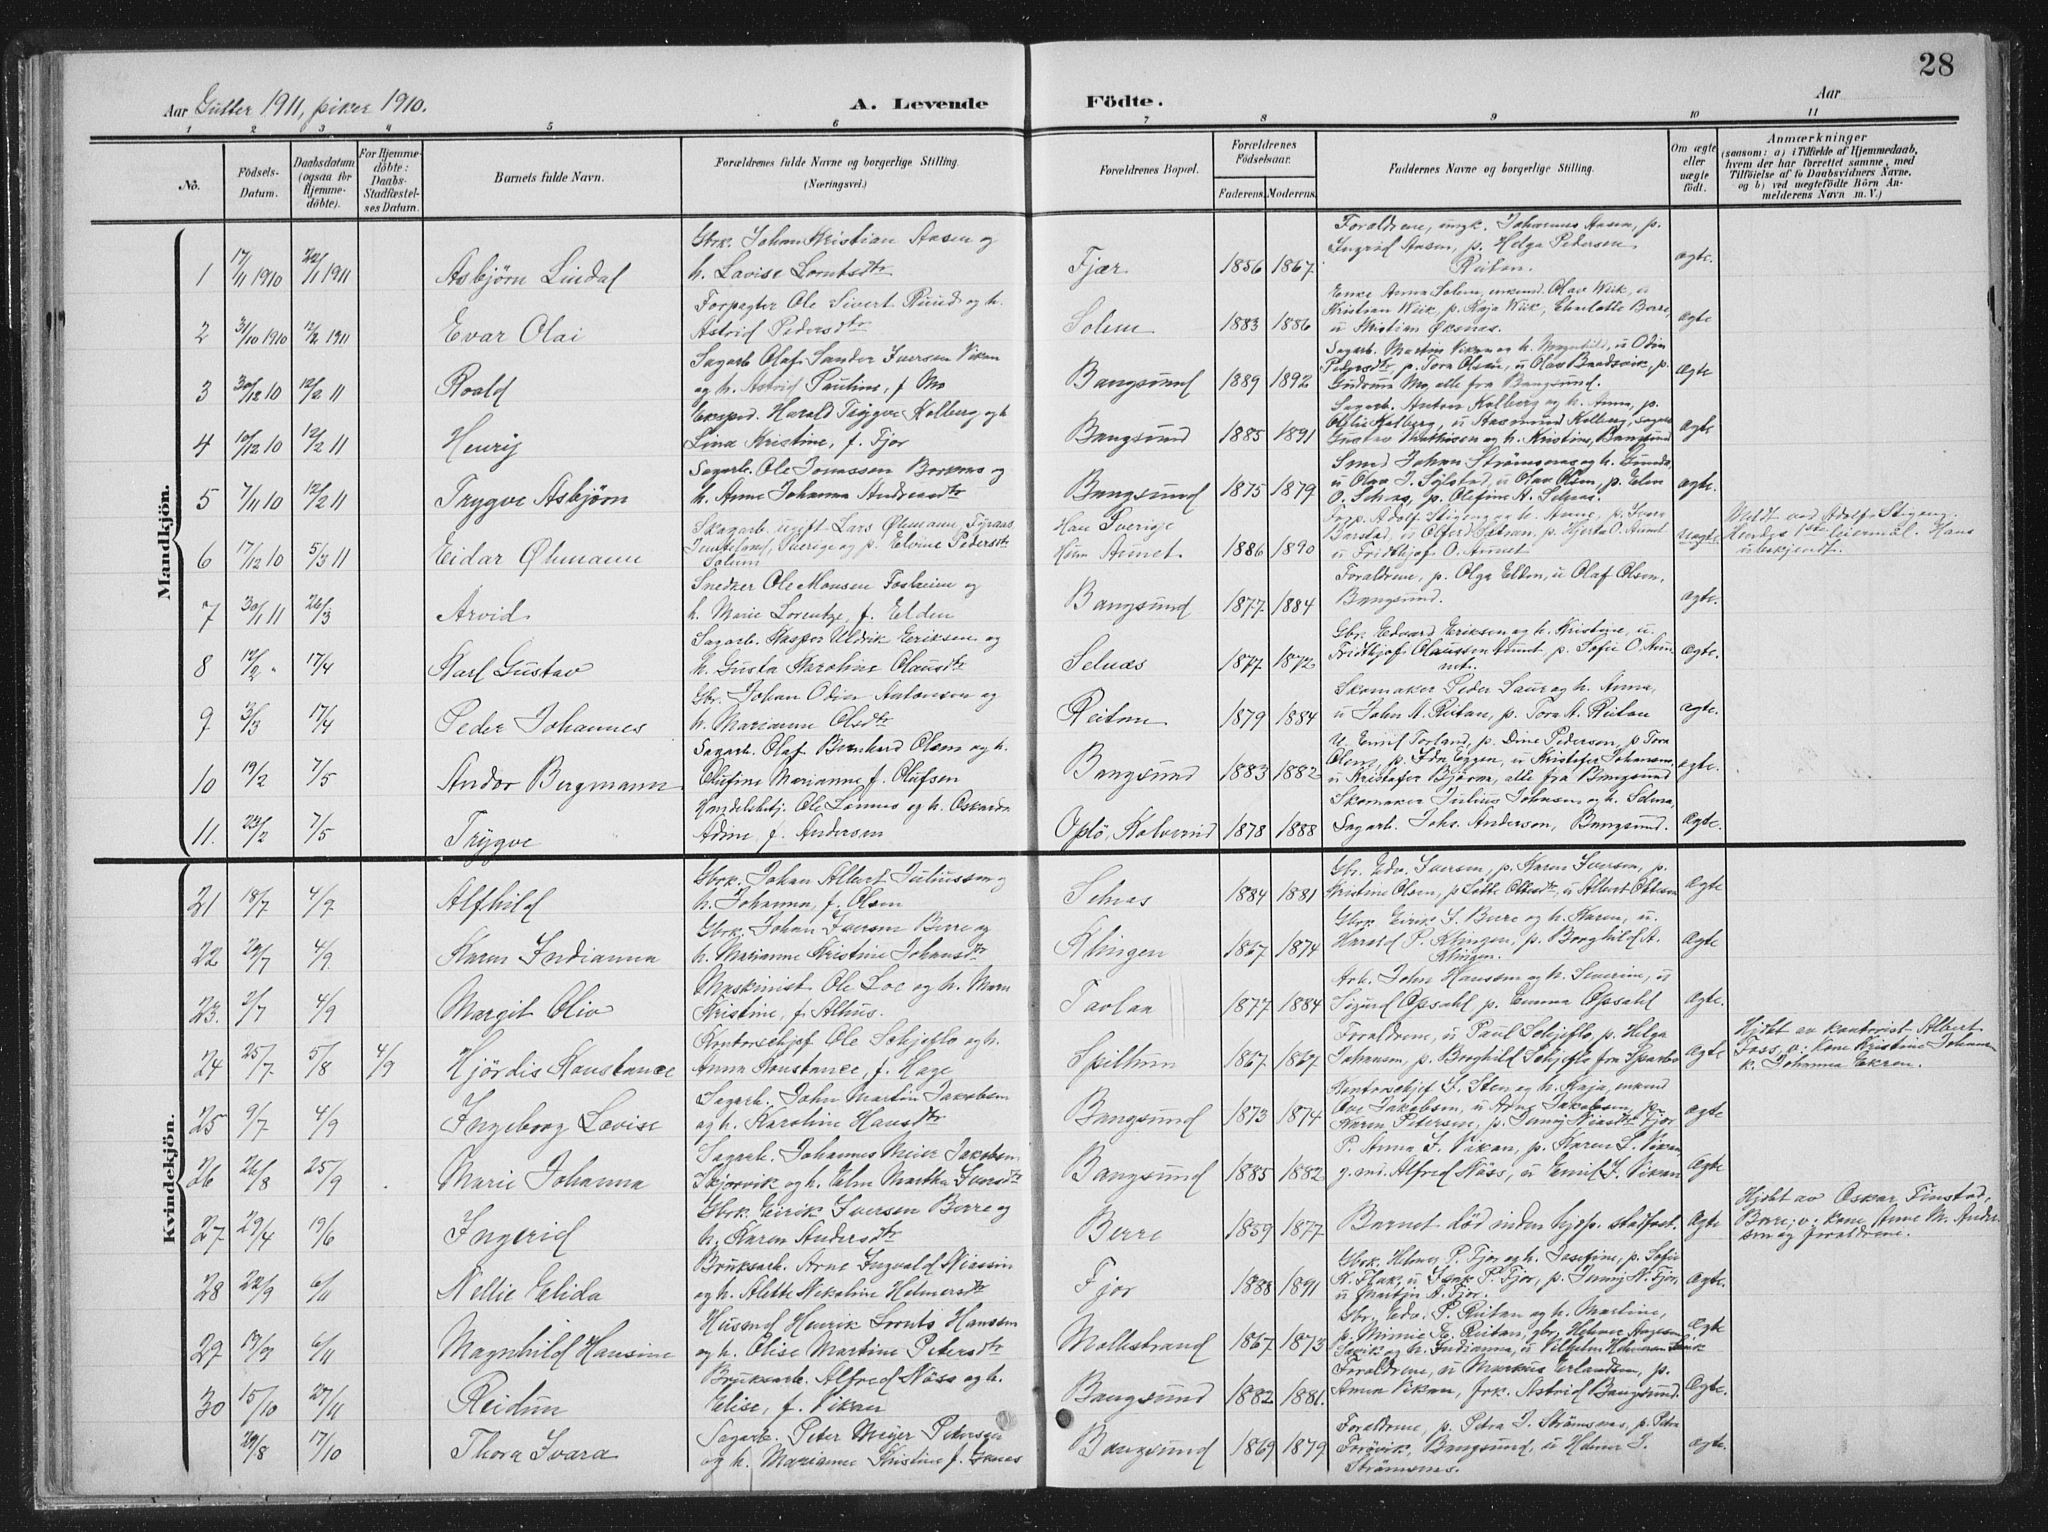 28
Aar Gutter 1911, piker 1910.
A. Levende Födte.
Aar
1 2 3 4 5 6 7 8 9 10 11
No.
Födsels-Datum.
Daabsdatum (ogsaa for Hjemmedöbte).
For Hjemmedöbte: Daabs-Stadfæstelses Datum.
Barnets fulde Navn.
Forældrenes fulde Navne og borgerlige Stilling. (Næringsvei.)
Forældrenes Bopæl.
Forældrenes Födselsaar.
Faderens. Moderens.
Faddernes Navne og borgerlige Stilling.
Om ægte eller uægte födt.
Anmærkninger
(saasom: a) i Tilfælde af Hjemmedaab, hvem der har forrettet samme, med Tilföielse af to Daabsvidners Navne, og b) ved uægtefödte Börn Anmelderens Navn m. V.)
Mandkjön.
1 17/11 1910 22/1 1911 Asbjørn Lindal Gbrk. Johan Kristian Aasen og h. Lavise Lorntsdtr Fjær 1856 1867 Forældrene, Johannes Aasen, p. Ingrid Aasen, p. Helga Pedersen Reitan. ægte.
2 31/10 1910 12/2 1911 Evar Olai Forpagter Ole Sivert Ruud og h. Astrid Pedersdtr Solem 1883 1886 Enke Anna Solem, Olav Wiik, u Kristian Wiik, p. Kaja Wiik, Charlotte Berre, u Kristian Øksnæs. ægte
3 30/12 10 12/2 11 Roald Sagarb. Olaf Sander Iversen Vikan og h. Astrid Pauline, f. Mo Bangsund 1889 1892 Sagarb. Martin Vikan og h. Magnhild, u Odin p. Tora Olsen, u Olav p. Gudrun Mo, alle fra Bangsund. ægte
4 10/12 10 12/2 11 Henrij Harald Trygve Kolberg og h Lina Kristine, f. Fjor Bangsund 1885 1891 Sagarb. Anton Kolberg og h. Anna, p. Kolberg, u Aasmund Kolberg, Gustav Mathisen og h. Kristine, Bangsund ægte
5 7/11 10 12/2 11 Trygve Asbjørn Sagarb. Ole Jonassen og h. Anne Johanna Andreasdtr Bangsund 1875 1879 Smed Johan Strømsnæs og h. Gunda, u Olav J. Sylstad, u Olav Olsen, p. Elen O. Selnæs, p. Olefine A. Selnæs. ægte.
6 17/12 10 5/3 11 Eidar Øhmann ugift Lars Øhmann, Sverige og p. Elvine Pedersdtr Solum Han Sverige Hun Aunet 1886 1890 Forp. Adolf Stigen og h. Anne, p. u p. Hjerta O. Aunet u Fridthjof O. Aunet uægte. Meldt ved Adolf Stigen. Hendes 1ste leiermål. Hans ubekjendt.
7 30/1 11 26/3 Arvid Snedker Ole Monsen Fosheim og h. Marie Lorentze, f. Elden Bangsund 1877 1884 Forældrene, p. Olga Elden, u Olaf Olsen, Bangsund. ægte.
8 12/2 " 17/4 Karl Gustav Sagarb. Kasper Uldrik Eriksen og h. Gusta Karoline Olausdtr Selnæs 1877 1872 Gbr. Edvard Eriksen og h. Kristine, u. Fridthjof Olaussen Aunet p. Sofie O. Aunet. ægte.
9 3/3 17/4 Peder Johannes Gbr. Johan Odin Antonsen og h. Marianne Olsdtr Reitan 1879 1884 Skomaker Peder Saur og h. Anna, u John A. Reitan, p. Tora A. Reitan ægte.
10 19/2 7/5 Andor Bergmann Sagarb. Olaf Bernhard Olsen og h. Olufine Marianne f. Olufsen Bangsund 1883 1882 U. Emil Torland, p. Dine Pedersen, p Tora Olsen, p. Ida Eggen, u Kristofer Johansen, u Kristofer Bjøraa, alle fra Bangsund ægte.
11. 23/2 7/5 Trygve Handelsbetj. Ole Lønnes og h. Oskara Adine, f. Andersen Oplö, Kolvereid 1878 1888 Skomaker Julius Johnsen og h. Selma, Sagarb. Johs. Anderson, Bangsund. ægte.
Kvindekjön.
21 18/7 4/9 Alfhild Gbrk. Johan Albert Juliussen og h. Johanna, f. Olsen Selnæs 1884 1881 Gbr. Edv. Iversen, p. Karen Iversen, p. Kristine Olsen, p Ottesdtr, u Albert Ottesen ægte
22 29/7 4/9. Karen Indianna Gbrk. Johan Iversen Berre og h. Marianne Kristine Johansdtr Klingen 1867 1874 Gbrk. Eirik I. Berre og h. Karen, u. Harald P. Klingen, p. Borghild A. Klingen. ægte
23. 2/7 4/9 Margit Oliv Maskinist Ole Loe og h. Maren Kristine, f. Alhus. Tavlaa 1877 1884 Arb. John Hansen og h. Severine, u Sigurd Opsahl p. Emma Opsahl ægte.
24 25/7 5/8 4/9 Hjördis Konstance Kontorschef Ole Schjeflo og h. Anna Konstance, f. Hage Spillum 1867 1867 Forældrene, u Paul Schjeflo, p. Helga Johansen, p. Borghild Schjeflo fra Sparbu ægte Hjdøbt av kontorist Albert Foss, v. Kone Kristine Johansen k. Johanna Ekren.
25 9/7 4/9 Ingeborg Lovise Sagarb. John Martin Jakobsen og h. Karoline Hansdtr Bangsund 1873 1874 Kontorschef I. Sten og h. Kaja, enkemd Ove Jakobsen, u Arne Jakobsen, p. Karen Petersen, p. Jenny Fjor ægte
26 26/8 25/9 Marie Johanna Sagarb. Johannes Meier Jakobsen Skjervik og h. Elen Martha Iversdtr Bangsund 1885 1882 P. Anna I. Vikan, p. Karen S. Vikan g. md. Alfred Näss, u Emil I. Vikan ægte
27 29/4 19/6 Ingerid Gbrk. Eirik Iversen Berre og h. Karen Andersdtr Berre 1859 1877 Barnet död inden hjdøp. stadfæst. ægte Hjdøbt av Oskar Finstad, Berre, v. kone Anne M. Andersen og forældrene.
28 22/9 6/11 Nellie Elida Bruksarb. Arne Ingvald Niassen og h. Alette Nikoline Helmersdtr Fjor 1888 1891 Gbrk. Helmer P. Fjor og h. Josefine, p. Sofie K. Flak, u P. Fjor, p. Jenny N. Fjor, u Martin A. Fjor. ægte.
29 13/9 6/11 Magnhild Hansine Husmd Henrik Lornts Hansen og h. Olise Martine Petersdtr Mollestrand 1867 1873 Gbr. Edv. P. Reitan og h. Martine, p. Minnie E. Reitan, gbr. Helmer Aagesen og h. Indianna, u Vilhelm ægte
30 15/10 27/11 Reidun Bruksarb. Alfred Näss og h. Elise, f. Vikan Bangsund 1882 1881. Forældrene, u Markus Erlandsen, p. Anna Vikan, frk. Astrid Bangsund. ægte.
29/8 17/10 Thora Ivara Sagarb. Peter Meyer Petersen og h. Marianne Kristine f. Bangsund 1869 1879 Forældrene, p. Petra J. Strømsnæs, p. Petra Forøvik, Bangsund, u Helmer J. Strømsnes. ægte.